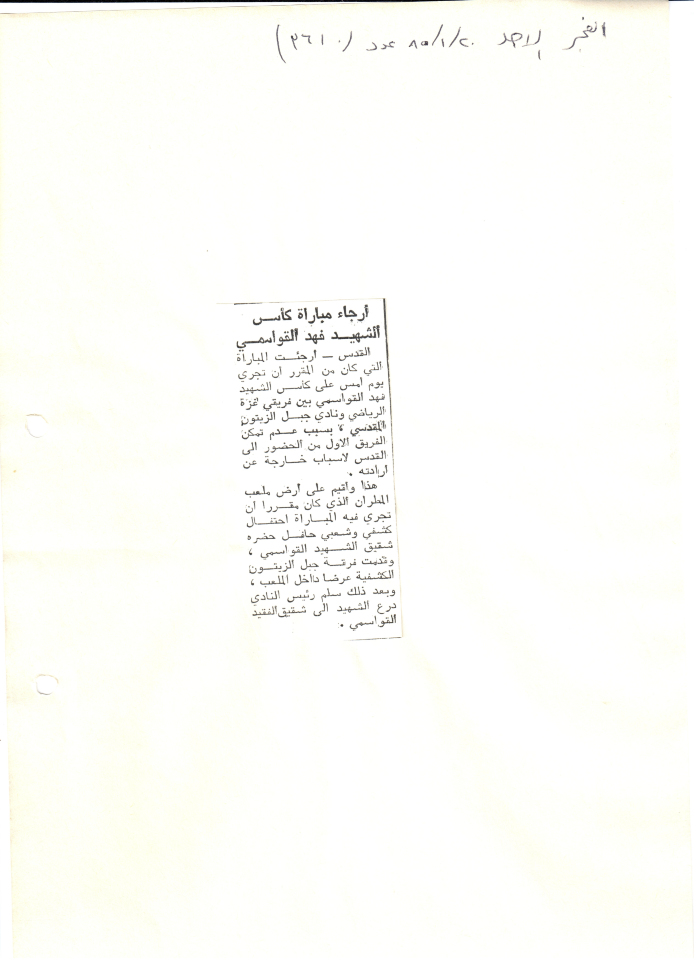 الفجر الاحد ٨٥/١/٢٠ عدد (٣٦١٠)
أرجاء مباراة كأس
الشهيد فهد القواسمي
القدس — ارجئت المباراة
التي كان من المقرر ان تجري
يوم امس على كأس الشهيد
فهد القواسمي بين فريقي غزة
الرياضي ونادي جبل الزيتون
المقدسي ، بسبب عدم تمكن
الفريق الاول من الحضور الى
القدس لاسباب خارجة عن
ارادته .
هذا واقيم على أرض ملعب
المطران الذي كان مقررا ان
تجري فيه المباراة احتفال
كشفي وشعبي حافل حضره
شقيق الشهيد القواسمي ،
وقدمت فرقة جبل الزيتون
الكشفية عرضا داخل الملعب ،
وبعد ذلك سلم رئيس النادي
درع الشهيد الى شقيق الفقيد
القواسمي .